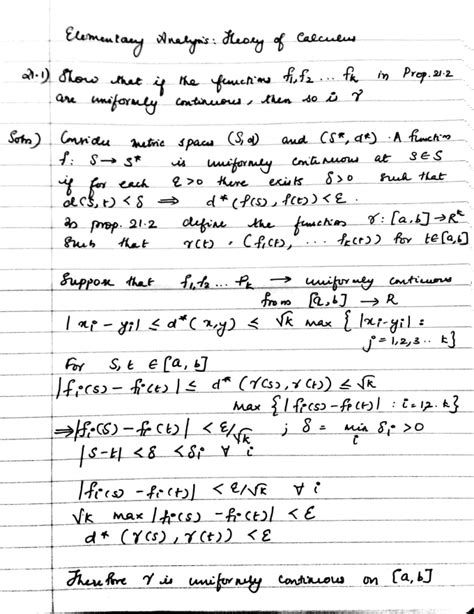 Elementary Analysis: Theory of Calculus
21.1) Show that if the functions f₁,f₂ ... fk in Prop. 21.2
are uniformly continuous, then so is γ
Soln) Consider metric spaces (S,d) and (S*, d*). A function
f: S → S* is uniformly continuous at s∈S
if for each ε>0 there exists δ>0 such that
d(s,t) < δ ⟹ d*(f(s), f(t)) < ε.
In prop. 21.2 define the function γ: [a,b]→Rᵏ
such that γ(t) = (f₁(t), ... fk(t)) for t∈[a,b]
Suppose that f₁,f₂ ... fk → uniformly continuous
from [a,b] → R
|xi - yi| ≤ d*(x,y) ≤ √k max {|xi-yi| :
j=1,2,3.. k}
For s,t ∈ [a,b]
|fi(s) - fi(t)| ≤ d*(γ(s), γ(t)) ≤ √k
max {|fi(s) - fi(t)| : i=12..k}
⟹|fi(s) - fi(t)| < ε/√k ; δ = min δi > 0
i
|s-t| < δ < δi ∀ i
|fi(s) - fi(t)| < ε/√k ∀ i
√k max |fi(s) - fi(t)| < ε
d*(γ(s), γ(t)) < ε
Therefore γ is uniformly continuous on [a,b]